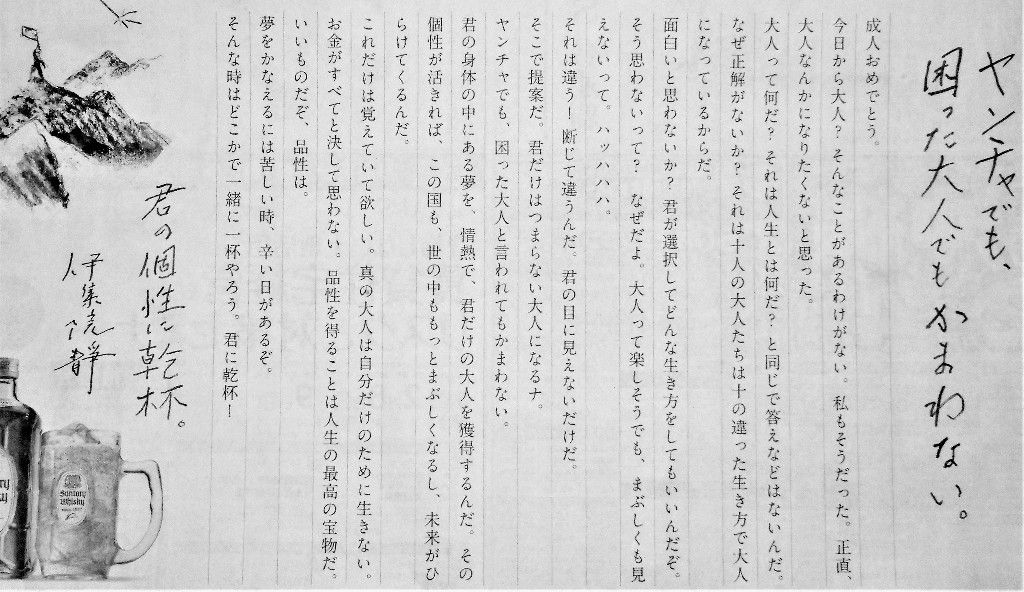 ヤンチャでも、
困った大人でもかまわない。
成人おめでとう。
今日から大人？そんなことがあるわけがない。私もそうだった。正直、
大人なんかになりたくないと思った。
大人って何だ？それは人生とは何だ？と同じで答えなどはないんだ。
なぜ正解がないか？それは十人の大人たちは十の違った生き方で大人
になっているからだ。
面白いと思わないか？君が選択してどんな生き方をしてもいいんだぞ。
そう思わないって？　なぜだよ。大人って楽しそうでも、まぶしくも見
えないって。ハッハハハ。
それは違う！断じて違うんだ。君の目に見えないだけだ。
そこで提案だ。君だけはつまらない大人になるナ。
ヤンチャでも、困った大人と言われてもかまわない。
君の身体の中にある夢を、情熱で、君だけの大人を獲得するんだ。その
個性が活きれば、この国も、世の中ももっとまぶしくなるし、未来がひ
らけてくるんだ。
これだけは覚えていて欲しい。真の大人は自分だけのために生きない。
お金がすべてと決して思わない。品性を得ることは人生の最高の宝物だ。
いいものだぞ、品性は。
夢をかなえるには苦しい時、辛い日があるぞ。
そんな時はどこかで一緒に一杯やろう。君に乾杯！
君の個性に乾杯。
伊集院静
Suntory
Whisky